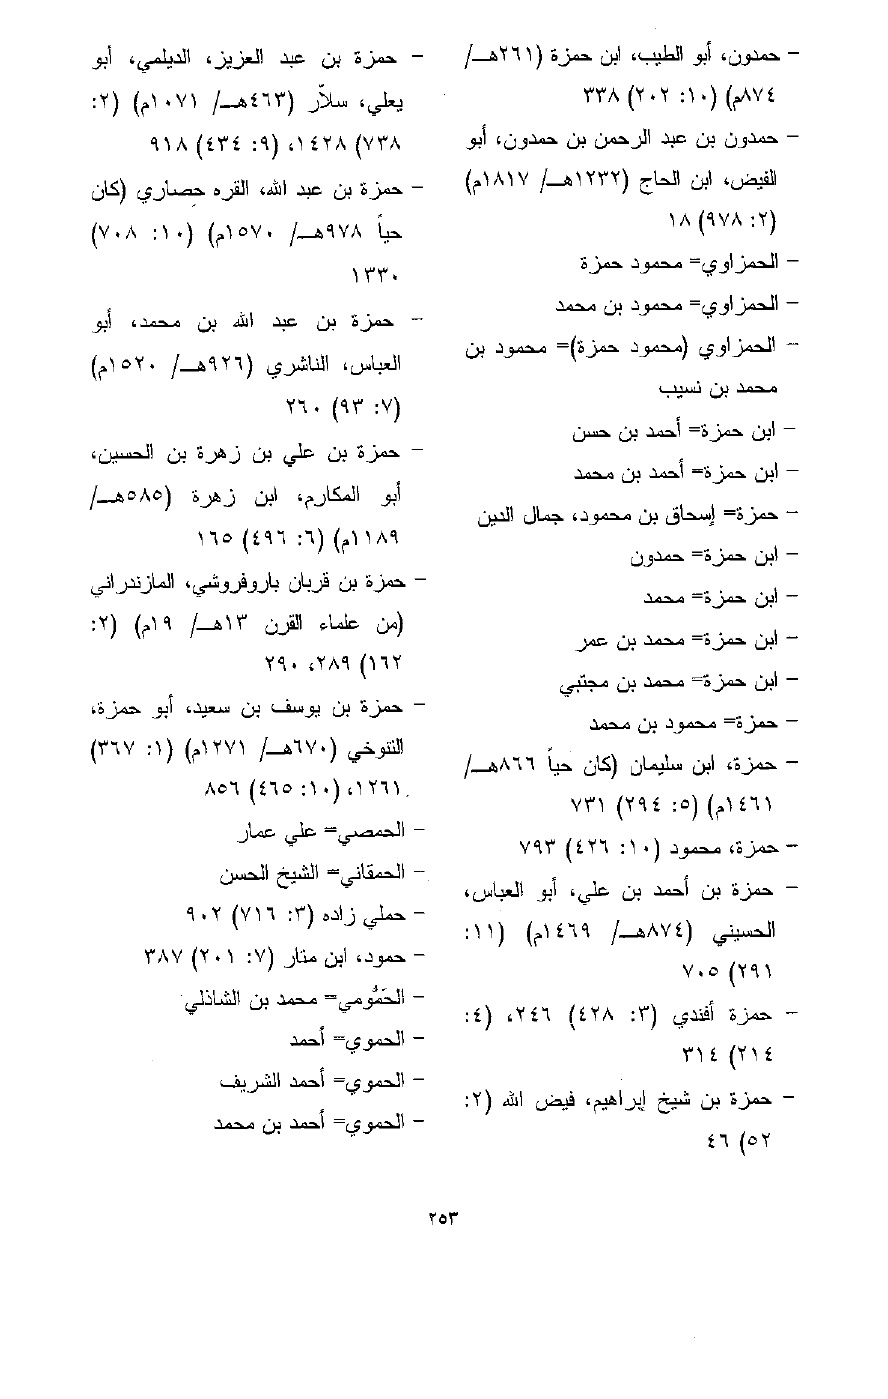 - حمدون، أبو الطيب، ابن حمزة (٢٦١هـ/
٨٧٤م) (١٠: ٢٠٢) ٣٣٨
- حمدون بن عبد الرحمن بن حمدون، أبو
الفيض، ابن الحاج (١٢٣٢هـ/ ١٨١٧م)
(٢: ٩٧٨) ١٨
- الحمزاوي= محمود حمزة
- الحمزاوي= محمود بن محمد
- الحمزاوي (محمود حمزة)= محمود بن
محمد بن نسيب
- ابن حمزة= أحمد بن حسن
- ابن حمزة= أحمد بن محمد
- حمزة= إسحاق بن محمود، جمال الدين
- ابن حمزة= حمدون
- ابن حمزة= محمد
- ابن حمزة= محمد بن عمر
- ابن حمزة= محمد بن مجتبي
- حمزة= محمود بن محمد
- حمزة، ابن سليمان (كان حياً ٨٦٦هـ/
١٤٦١م) (٥: ٢٩٤) ٧٣١
- حمزة، محمود (١٠: ٤٢٦) ٧٩٣
- حمزة بن أحمد بن علي، أبو العباس،
الحسيني (٨٧٤هـ/ ١٤٦٩م) (١١:
٢٩١) ٧٠٥
- حمزة أفندي (٣: ٤٢٨) ٢٤٦، (٤:
٢١٤) ٣١٤
- حمزة بن شيخ إبراهيم، فيض الله (٢:
٥٢) ٤٦
- حمزة بن عبد العزيز، الديلمي، أبو
يعلي، سلاّر (٤٦٣هـ/ ١٠٧١م) (٢:
٧٣٨) ١٤٢٨، (٩: ٤٣٤) ٩١٨
- حمزة بن عبد الله، القره حصاري (كان
حياً ٩٧٨هـ/ ١٥٧٠م) (١٠: ٧٠٨)
١٣٣٠
- حمزة بن عبد الله بن محمد، أبو
العباس، الناشري (٩٢٦هـ/ ١٥٢٠م)
(٧: ٩٣) ٢٦٠
- حمزة بن علي بن زهرة بن الحسين،
أبو المكارم، ابن زهرة (٥٨٥هـ/
١١٨٩م) (٦: ٤٩٦) ١٦٥
- حمزة بن قربان باروفروشي، المازندراني
(من علماء القرن ١٣هـ/ ١٩م) (٢:
١٦٢) ٢٨٩، ٢٩٠
- حمزة بن يوسف بن سعيد، أبو حمزة،
التنوخي (٦٧٠هـ/ ١٢٧١م) (١: ٣٦٧)
١٢٦١، (١٠: ٤٦٥) ٨٥٦
- الحمصي= علي عمار
- الحمقاني= الشيخ الحسن
- حملي زاده (٣: ٧١٦) ٩٠٢
- حمود، ابن منار (٧: ٢٠١) ٣٨٧
- الحَمُّومي= محمد بن الشاذلي
- الحموي= أحمد
- الحموي= أحمد الشريف
- الحموي= أحمد بن محمد
٢٥٣